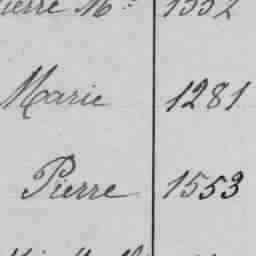 Pierre M. 1332
Marie 1281
Pierre 1553